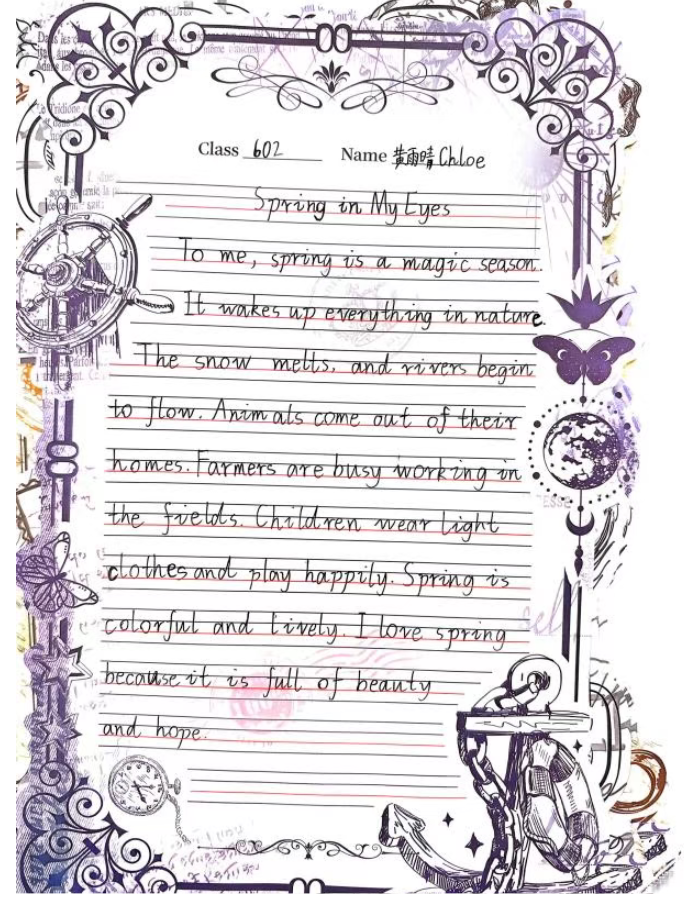 Class 602 Name 黄雨晴 Chloe
Spring in My Eyes
To me, spring is a magic season.
It wakes up everything in nature.
The snow melts, and rivers begin
to flow. Animals come out of their
homes. Farmers are busy working in
the fields. Children wear light
clothes and play happily. Spring is
colorful and lively. I love spring
because it is full of beauty
and hope.